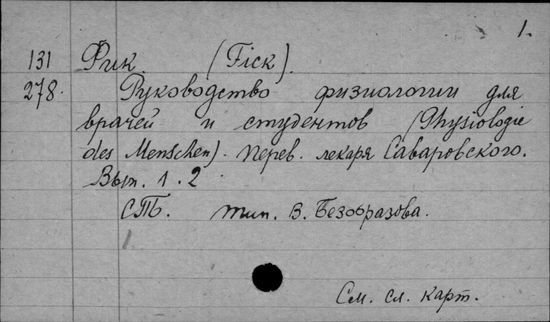 1.
131 Фик. (Fick).
278. Руководство физиологии для
врачей и студентов (Physiologie
des Menschen). Перев. лекаря Саваровского.
Вып. 1. 2
СПб. тип. В. Безобразова.
1.
См. сл. карт.